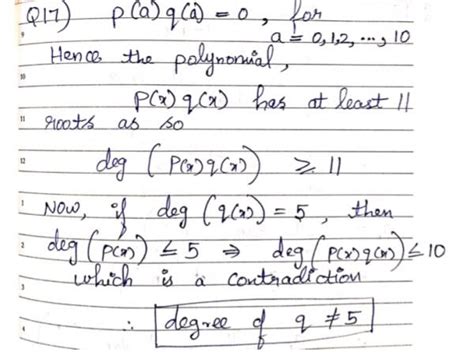 Q17) p(a) q(a) = 0, for
a = 0,1,2, ..., 10
Hence the polynomial,
p(x) q(x) has at least 11
roots as so
deg (p(x) q(x)) ≥ 11
Now, if deg (q(x)) = 5, then
deg (p(x)) ≤ 5 ⇒ deg (p(x) q(x)) ≤ 10
which is a contradiction
∴ degree of q ≠ 5